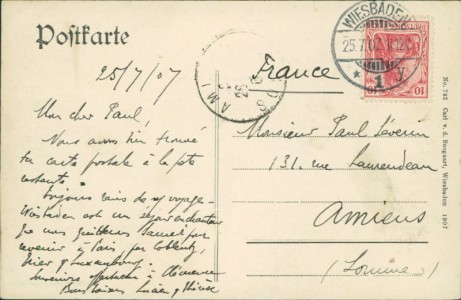 Postkarte
WIESBADEN
25.7.07. 11-12
* 1 y
10 10
AMI
25/7/07
France
Mon cher Paul,
Nous avons bien trouvé
ta carte postale à la poste
restante.
Toujours ravis de voyage.
Wiesbaden est un séjour enchanteur
que nous quittons samedi pour
revenir à Paris, par Coblentz,
Trier & Luxembourg.
à Clémence
Bons baisers Lucien &
Monsieur Paul Séverin
131. rue Laurendeau
Amiens
(Somme)
No. 782 Carl v. d. Boogaart, Wiesbaden 1907